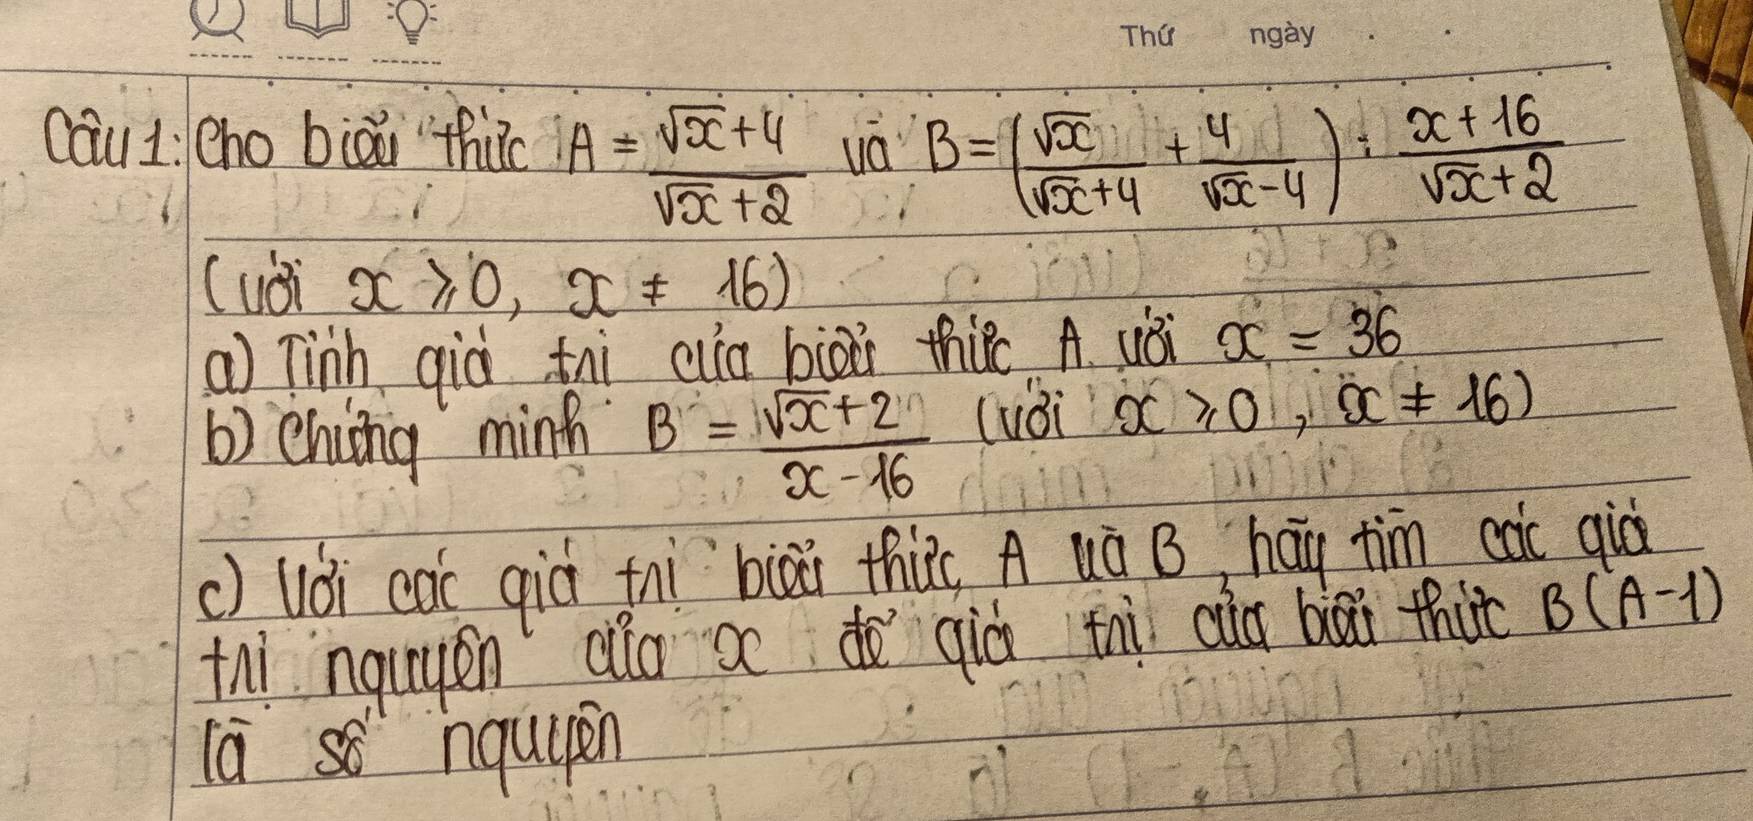 Thứ ngày
Câu 1: Cho biểu thức A = (√x+4)/(√x+2) và B = (√x/(√x+4) + 4/(√x-4)) : (x+16)/(√x+2)
(với x ⩾ 0, x ≠ 16)
a) Tính giá trị của biểu thức A với x = 36
b) Chứng minh B = (√x+2)/(x-16) (với x ⩾ 0, x ≠ 16)
c) Với các giá trị biểu thức A và B, hãy tìm các giá
trị nguyên của x để giá trị của biểu thức B(A-1)
là số nguyên